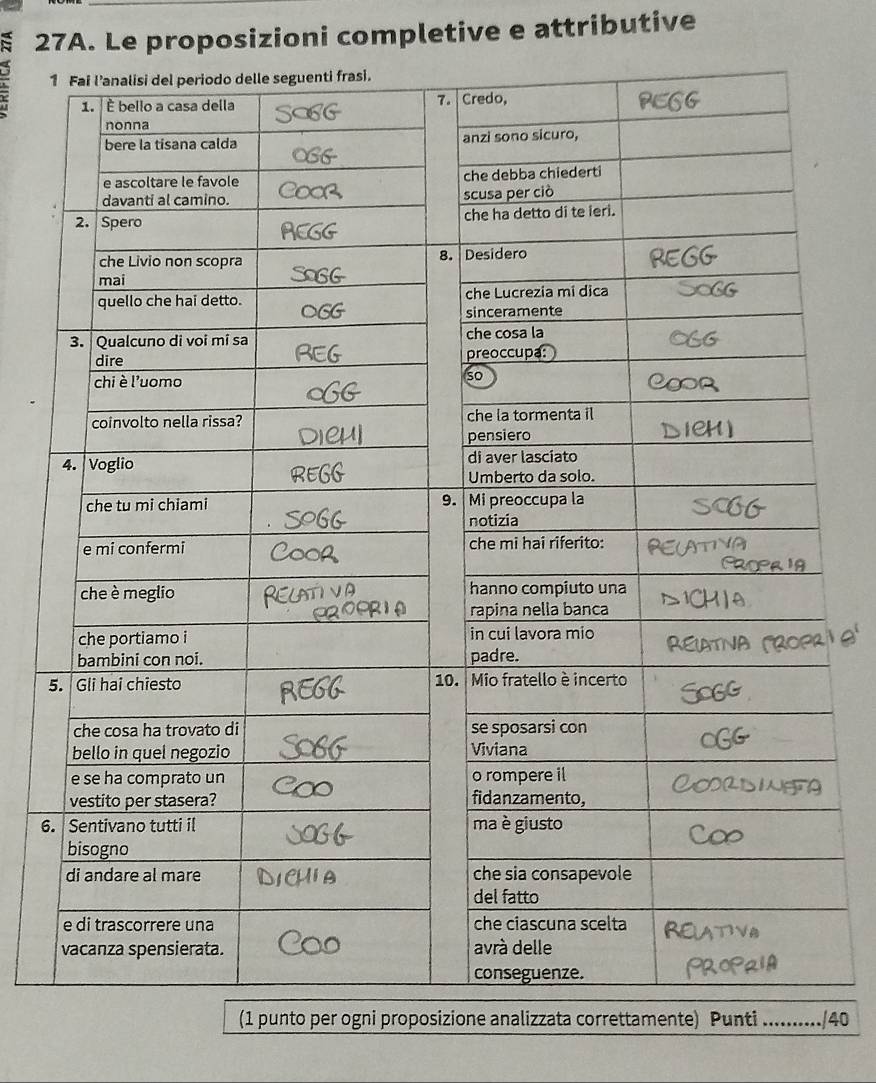 VERIFICA 27A
27A. Le proposizioni completive e attributive
1 Fai l'analisi del periodo delle seguenti frasi.
1. È bello a casa della
nonna
SOGG
bere la tisana calda
OGG
e ascoltare le favole
davanti al camino.
COOR
2. Spero
REGG
che Livio non scopra
mai
SOGG
quello che hai detto.
OGG
3. Qualcuno di voi mi sa
dire
REG
chi è l'uomo
OGG
coinvolto nella rissa?
DICHI
4. Voglio
REGG
che tu mi chiami
SOGG
e mi confermi
COOR
che è meglio
RELATIVA
PROPRIA
che portiamo i
bambini con noi.
5. Gli hai chiesto
REGG
che cosa ha trovato di
bello in quel negozio
SOGG
e se ha comprato un
vestito per stasera?
COO
6. Sentivano tutti il
bisogno
SOGG
di andare al mare
DICHIA
e di trascorrere una
vacanza spensierata.
COO
7. Credo,
REGG
anzi sono sicuro,
che debba chiederti
scusa per ciò
che ha detto di te ieri.
8. Desidero
REGG
che Lucrezia mi dica
sinceramente
SOGG
che cosa la
preoccupa:
OGG
so
COOR
che la tormenta il
pensiero
DICHI
di aver lasciato
Umberto da solo.
9. Mi preoccupa la
notizia
SOGG
che mi hai riferito:
RELATIVA
PROPRIA
hanno compiuto una
rapina nella banca
DICHIA
in cui lavora mio
padre.
RELATIVA PROPRIA
10. Mio fratello è incerto
SOGG
se sposarsi con
Viviana
OGG
o rompere il
fidanzamento,
COORDINATA
ma è giusto
COO
che sia consapevole
del fatto
che ciascuna scelta
avrà delle
conseguenze.
RELATIVA
PROPRIA
(1 punto per ogni proposizione analizzata correttamente) Punti ........../40